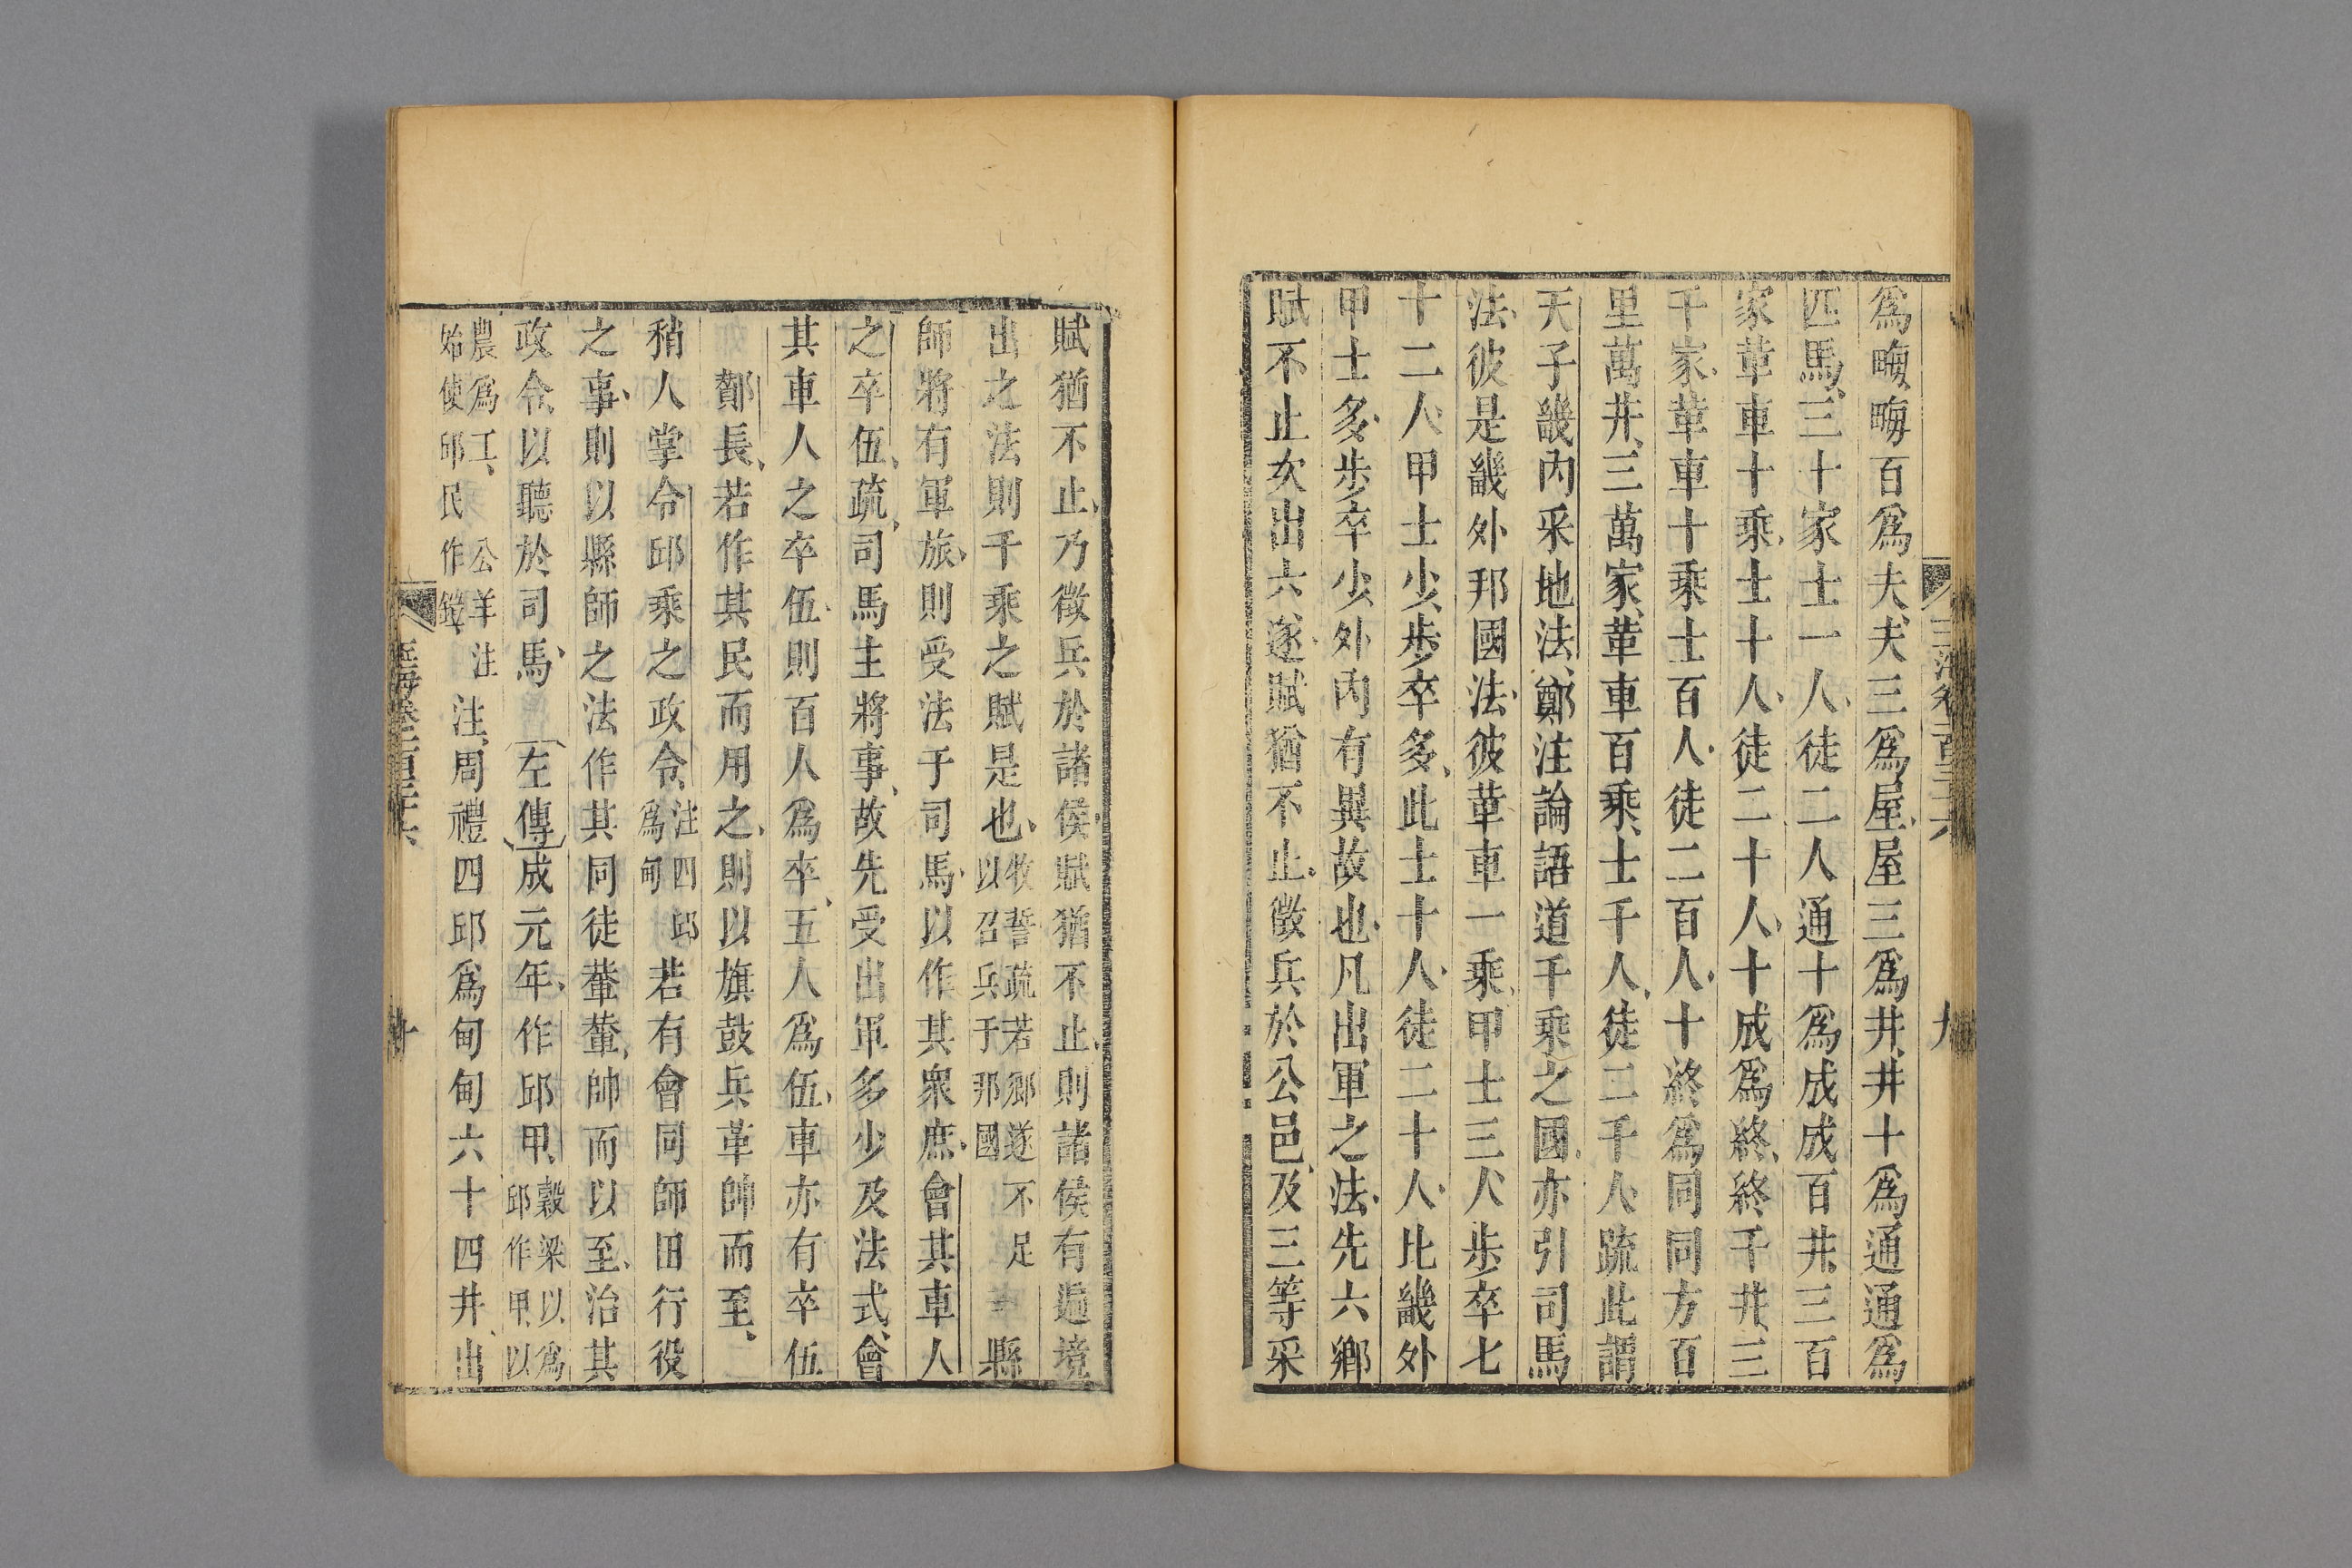 爲畮畮百爲夫夫三爲屋屋三爲井井十爲通通爲
匹馬三十家士一人徒二人通十爲成成百井三百
家革車十乘士十人徒二十人十成爲終終千井三
千家革車十乘士百人徒二百人十終爲同同方百
里萬井三萬家革車百乘士千人徒二千人疏此謂
天子畿內采地法鄭注論語道千乘之國亦引司馬
法彼是畿外邦國法彼革車一乘甲士三人步卒七
十二人甲士少步卒多此士十人徒二十人比畿外
甲士多步卒少外內有異故也凡出軍之法先六鄉
賦不止次出六遂賦猶不止徵兵於公邑及三等采
賦猶不止乃徵兵於諸侯賦猶不止則諸侯有遍境
出之法則千乘之賦是也牧誓疏若鄉遂不足以召兵于邦國縣
師將有軍旅則受法于司馬以作其衆庶會其車人
之卒伍疏司馬主將事故先受出軍多少及法式會
其車人之卒伍則百人爲卒五人爲伍車亦有卒伍
鄼長若作其民而用之則以旗鼓兵革帥而至
稍人掌令邱乘之政令注四邱爲甸若有會同師田行役
之事則以縣師之法作其同徒輂輦帥而以至治其
政令以聽於司馬左傳成元年作邱甲穀梁以爲邱作甲以
農爲工公羊注始使邱民作鎧注周禮四邱爲甸甸六十四井出
玉海卷一百三十六
九
十